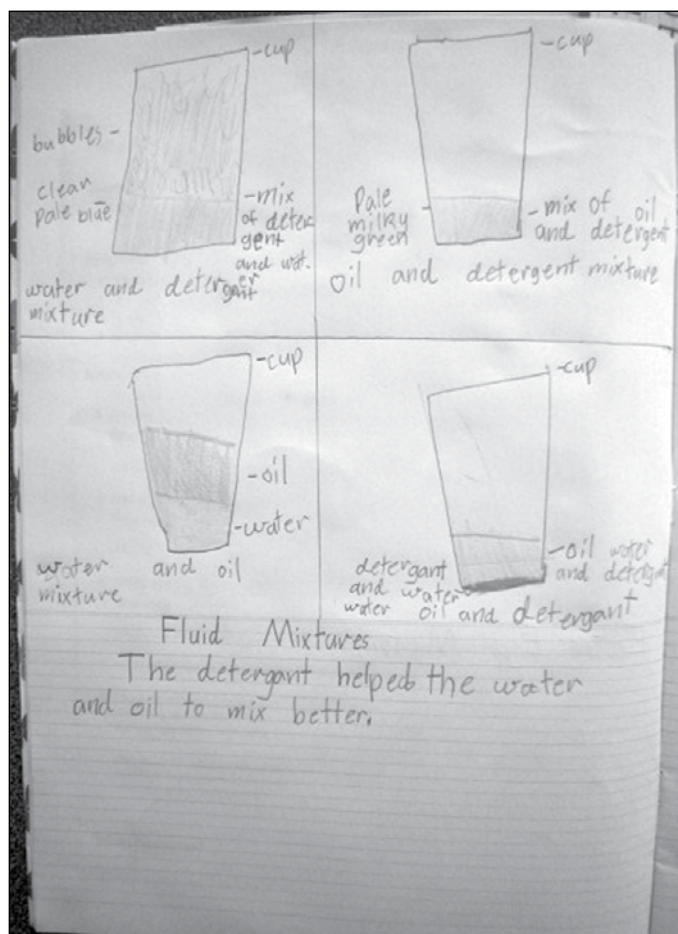 -cup
bubbles -
clean
pale blue
-mix
of deter
gent
and wat-
er
water and detergant
mixture
-cup
Pale
milky
green
-mix of oil
and detergent
oil and detergent mixture
-cup
-oil
-water
water and oil
mixture
-cup
-oil water
and detergent
detergant
and water
water oil and detergant
Fluid Mixtures
The detergant helped the water
and oil to mix better.